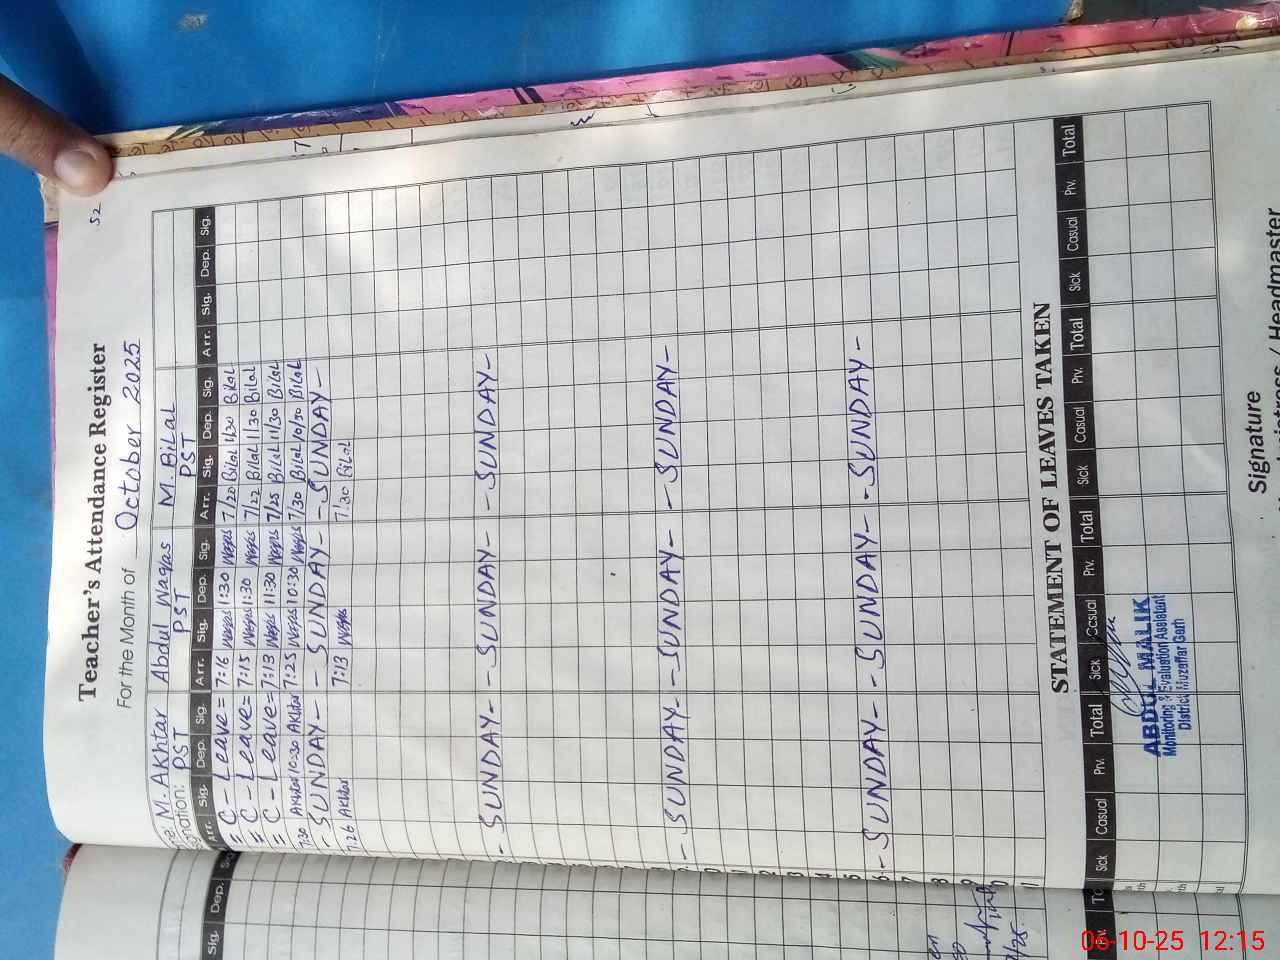 52
Teacher's Attendance Register
For the Month of October 2025
M. Akhtar Abdul Waqas M. BiLaL
nation: PST PST PST
Arr. Sig. Dep. Sig. Arr. Sig. Dep. Sig. Arr. Sig. Dep. Sig. Arr. Sig. Dep. Sig.
= C - Leave = 7:16 Waqas 1:30 Waqas 7/20 Bilal 1/30 Bilal
= C - Leave = 7:15 Waqas 1:30 Waqas 7/22 Bilal 11/30 Bilal
= C - Leave = 7:13 Waqas 11:30 Waqas 7/25 Bilal 11/30 Bilal
7:30 Akhtar 10:30 Akhtar 7:25 Waqas 10:30 Waqas 7/30 Bilal 10/30 Bilal
- SUNDAY - - SUNDAY - - SUNDAY -
7:26 Akhtar 7:13 Waqas 7:30 Bilal
- SUNDAY - - SUNDAY - - SUNDAY -
- SUNDAY - - SUNDAY - - SUNDAY -
- SUNDAY - - SUNDAY - - SUNDAY -
STATEMENT OF LEAVES TAKEN
Sick Casual Prv. Total Sick Casual Prv. Total Sick Casual Prv. Total Sick Casual Prv. Total
ABDUL MALIK
Monitoring & Evaluation Assistant
District Muzaffar Garh
Signature
Headmaster
Sig. Dep.
06-10-25 12:15